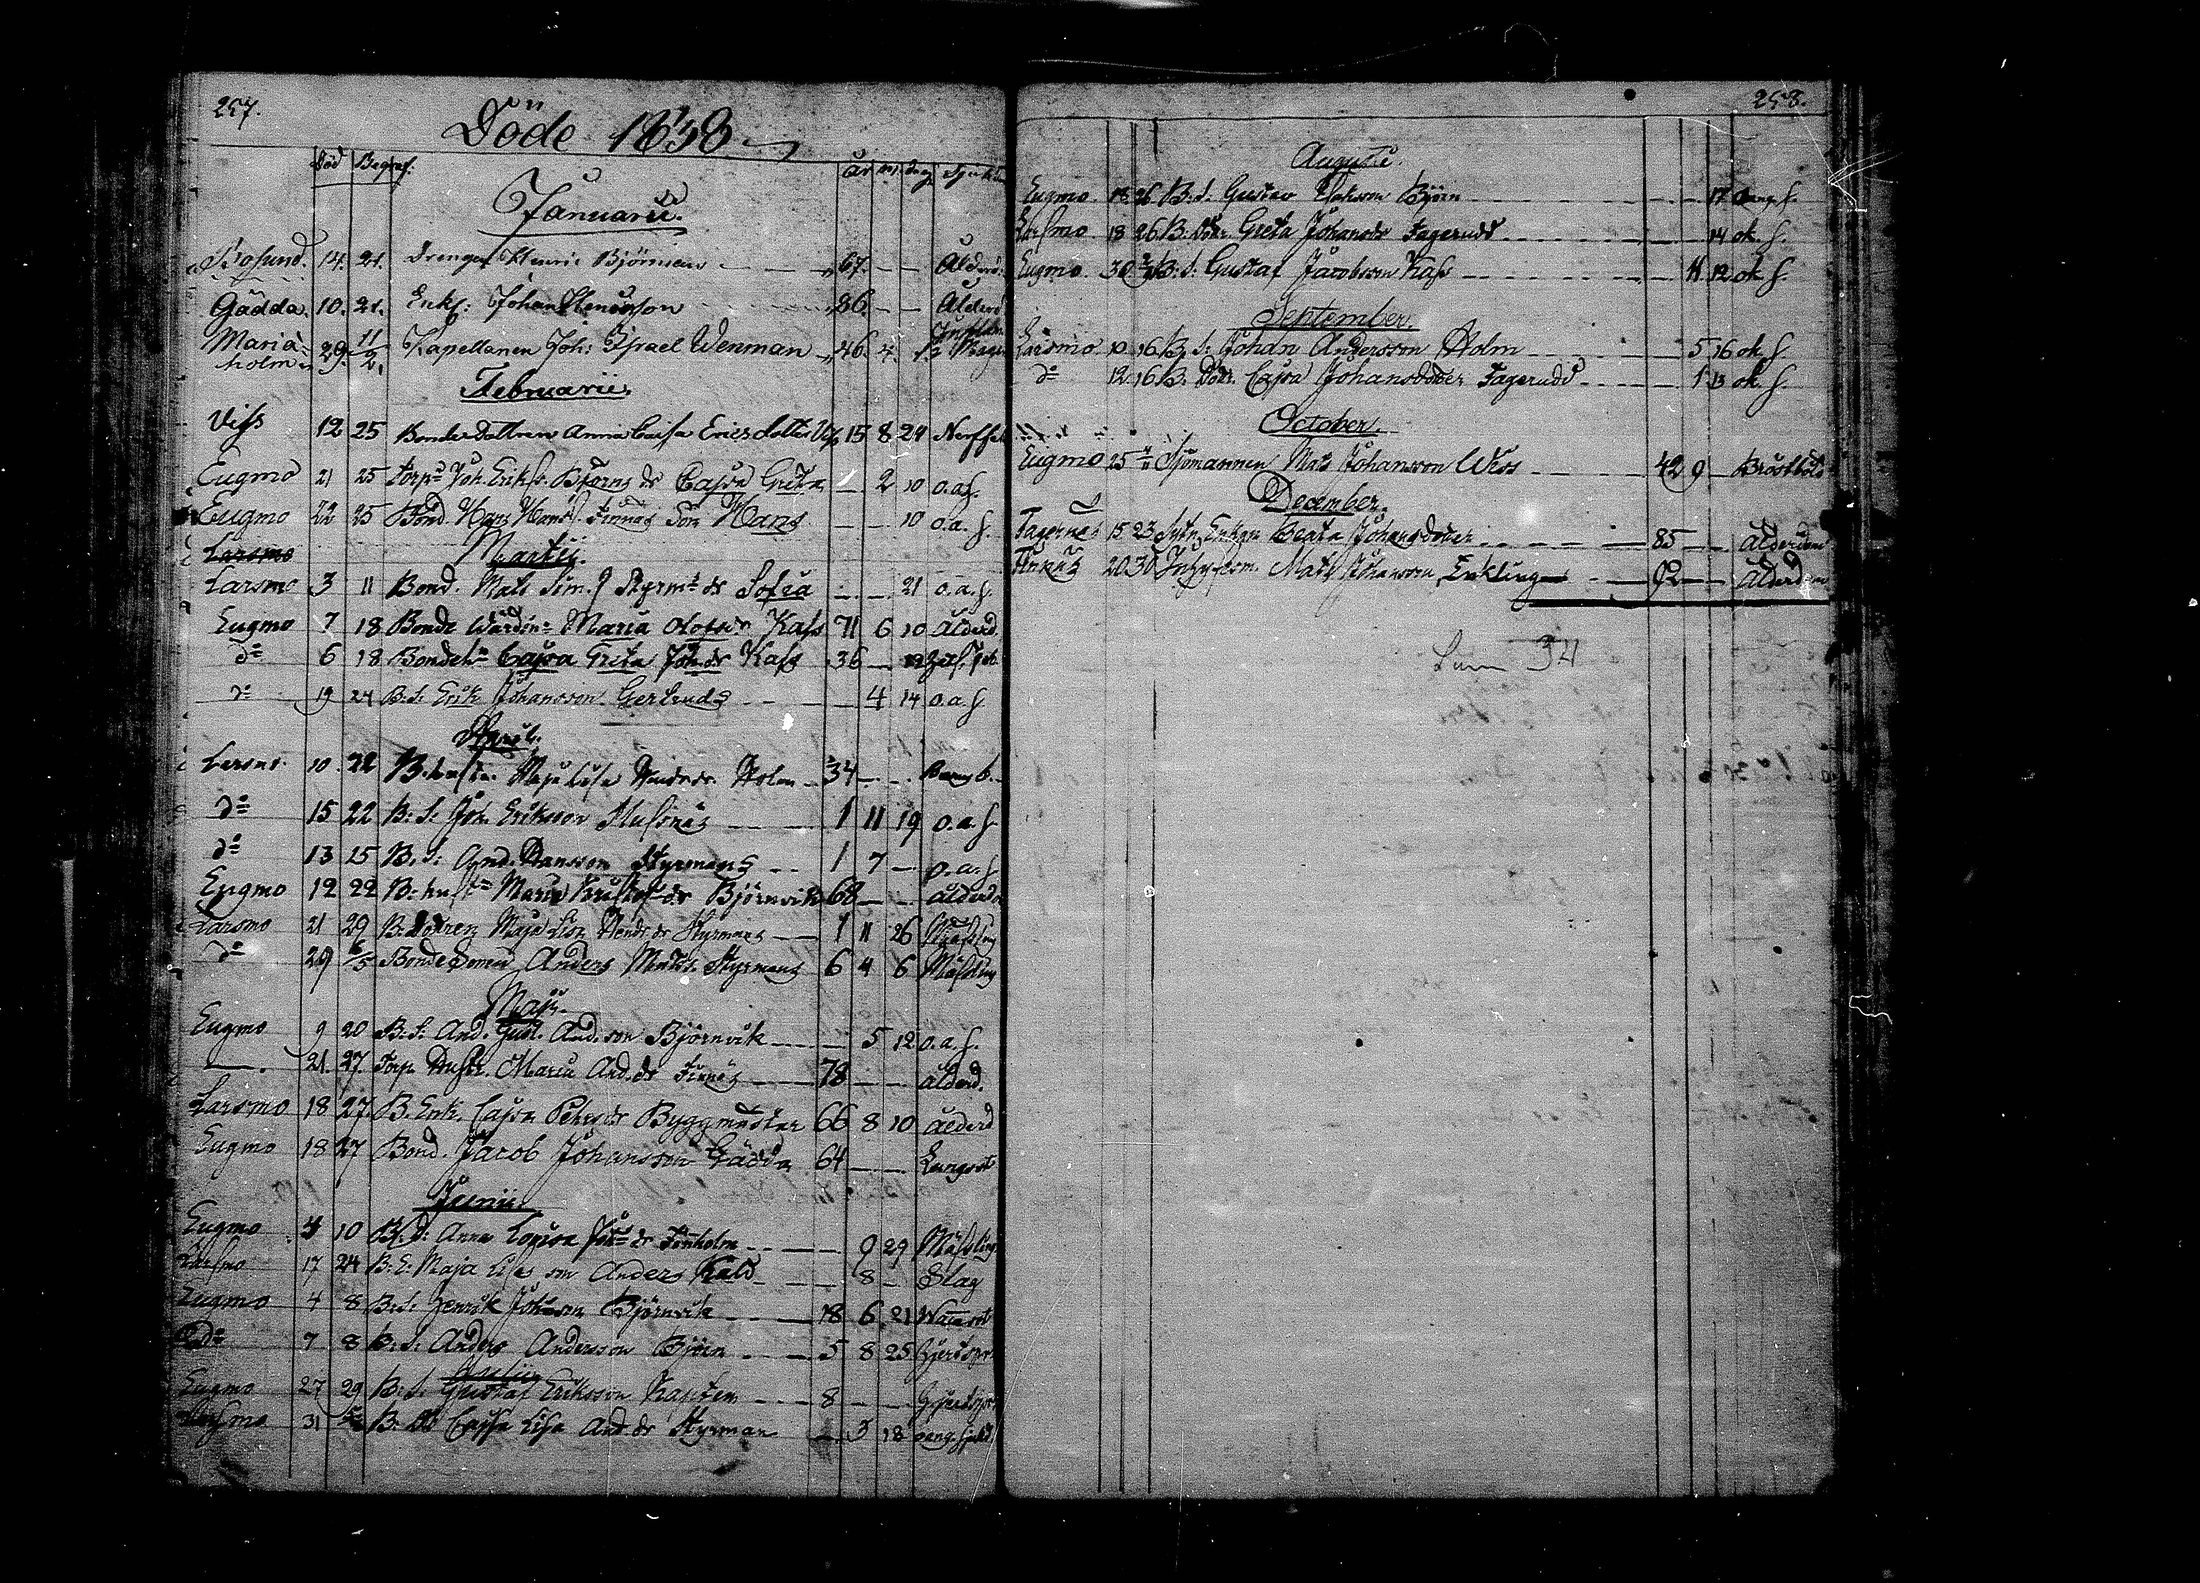 257.
Döde 1838
Död Begraf. År m. dag. Sjukdom
Januarii.
Bosund. 14. 21. Drengen Henric Björnsen 67. — — Ålderd.
Gädda. 10. 21. Enkl: Johan Henricsson 86. — — Ålderd
Maria- 29. 11/2. Kapellanen Joh: Israel Wenman 46. 4.
holm
Februarii.
Viss 12 25 Bonde Dottren Anna Caisa Ericsdotter 15 8 24
Eugmo 21 25 Torp: Joh. Eriks. Björns dr Cajsa Greta — 2 10 o.a.s.
Eugmo 22 25 Bond. Hans Hanss. Finnäs Son Hans — — 10 o.a.s.
Larsmo
Martii.
Larsmo 3 11 Bond. Mats Sim. Styrm: dr Sofia — — 21 o.a.s.
Eugmo 7 18 Bonde Wärdin: Maria Olofsdr Kass 71 6 10 Ålderd.
do 6 18 Bondeh: Cajsa Greta Joh: dr Kass 36 — 12
do 19 24 B: S: Erik Johansson Gertruds — 4 14 o.a.s.
April.
Larsmo. 10 22 B. hustr. Maja Lisa Hendr. dr. Holm 34 — — Barnsb.
do 15 22 B: S: Joh. Eriksson 1 11 19 o.a.s.
do 13 15 B. S: And. Hansson Styrmans 1 7 — o.a.s
Eugmo 12 22 B. hust: Maria Kristofdr Björnvik 68 — — ålderd
Larsmo 21 29 B. Dottren Maja Lisa Hendr dr Styrmans 1 11 26 Mässling
do 29 6/5 Bonde Sonen Anders Matss. Styrmans 6 4 6 Mässling
Maji.
Eugmo 9 20 B: S: And. Gust. And. son Björnvik — 5 12 o.a.s.
— 21. 27. Torp. Hustr. Maria And. dr Finnäs 78 — — ålderd.
Larsmo 18 27. B. Enk. Cajsa Petersdr Byggmästar 66 8 10 ålderd
Eugmo 18 27 Bond. Jacob Johansson Gädda 64 — — Lungsot
Junii.
Eugmo 4 10 B. d: Anna Lovisa Joh: dr Finholm — 9 29 Mässling
Larsmo 17 24 B: E: Maja Lisas son Anders Kald — 8 — Slag
Eugmo 4 8 B: S: Henrik Johsson Björnvik 18 6 21 Wattusot
do 7 8 B: S: Anders Andersson Björn 5 8 25
Julii
Eugmo 27 29 B: S: Gustaf Eriksson Kapten 8 — —
Larsmo 31 B. Dr Cajsa Lisa And. dr Styrman — 3 18 oang. sjukd.
258.
Augusti.
Eugmo. 18 26 B: S: Gustav Björn — — 17 oang. s.
Larsmo 18 26 B. Dotr. Greta Johansdr Fagerudd — — 14 ok. s.
Eugmo. 30 B: S: Gustaf Jacobsson Kass — 11 12 ok s.
September.
Larsmo 10 16 B. S: Johan Andersson Holm — 5 16 ok s
do 12 16 B. Dotr. Cajsa Johansdoter Fagerudd — 1 13 ok. s.
October.
Eugmo 25 Sjömannen Mats Johansson Wiss 42 9 — Bröstsjuk
December.
Fagernäs 15 23 Sytn. Enkan Beata Johansdoter 85 — — ålderdom
Finnäs 20 30 Mats Johansson, Enkling 92 — — ålderdom
Sum 34